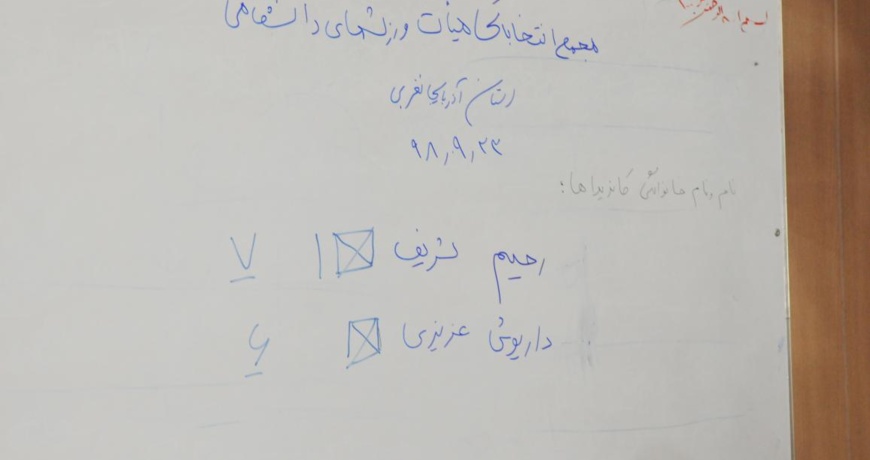 مجمع انتخاباتی هیات ورزشهای دانشگاهی
استان آذربایجانغربی
۹۸٫۹٫۲۳
نام و نام خانوادگی کاندیداها:
رحیم شریف ۱ ۷
داریوش عزیزی ۶